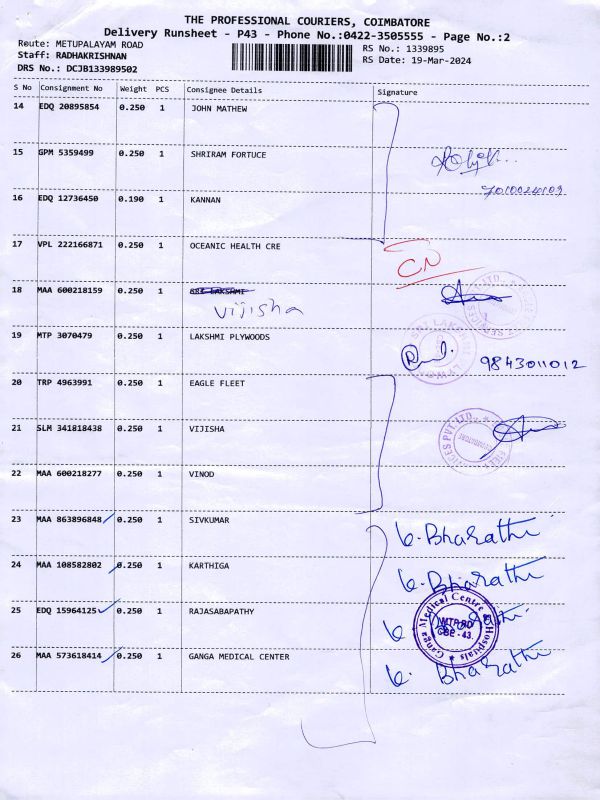 THE PROFESSIONAL COURIERS, COIMBATORE
Delivery Runsheet - P43 - Phone No.:0422-3505555 - Page No.:2
Route: METUPALAYAM ROAD
Staff: RADHAKRISHNAN
DRS No.: DCJB133989502
RS No.: 1339895
RS Date: 19-Mar-2024
S No Consignment No Weight PCS Consignee Details Signature
14 EDQ 20895854 0.250 1 JOHN MATHEW
15 GPM 5359499 0.250 1 SHRIRAM FORTUCE
16 EDQ 12736450 0.190 1 KANNAN
17 VPL 222166871 0.250 1 OCEANIC HEALTH CRE CN
18 MAA 600218159 0.250 1 SRI LAKSHMI
Vijisha
19 MTP 3070479 0.250 1 LAKSHMI PLYWOODS 9843011012
20 TRP 4963991 0.250 1 EAGLE FLEET
21 SLM 341818438 0.250 1 VIJISHA
22 MAA 600218277 0.250 1 VINOD
23 MAA 863896848 0.250 1 SIVKUMAR K. Bharathi
24 MAA 108582802 0.250 1 KARTHIGA K. Bharathi
25 EDQ 15964125 0.250 1 RAJASABAPATHY K. Bharathi
Ganga Medical Centre & Hospitals
MTP RD
CBE - 43.
26 MAA 573618414 0.250 1 GANGA MEDICAL CENTER K. Bharathi